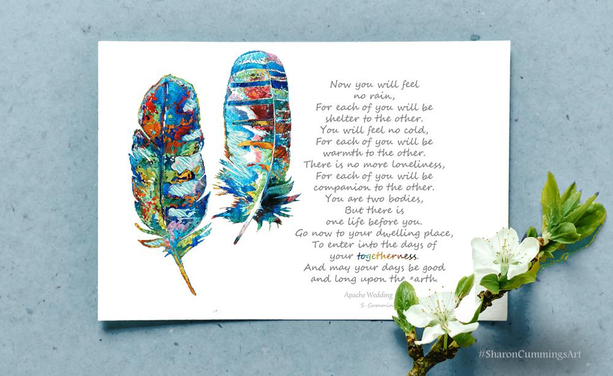 Now you will feel
no rain,
For each of you will be
shelter to the other.
You will feel no cold,
For each of you will be
warmth to the other.
There is no more loneliness,
For each of you will be
companion to the other.
You are two bodies,
But there is
one life before you.
Go now to your dwelling place,
To enter into the days of
your togetherness.
And may your days be good
and long upon the earth
Apache Wedding
S.
#SharonCummingsArt